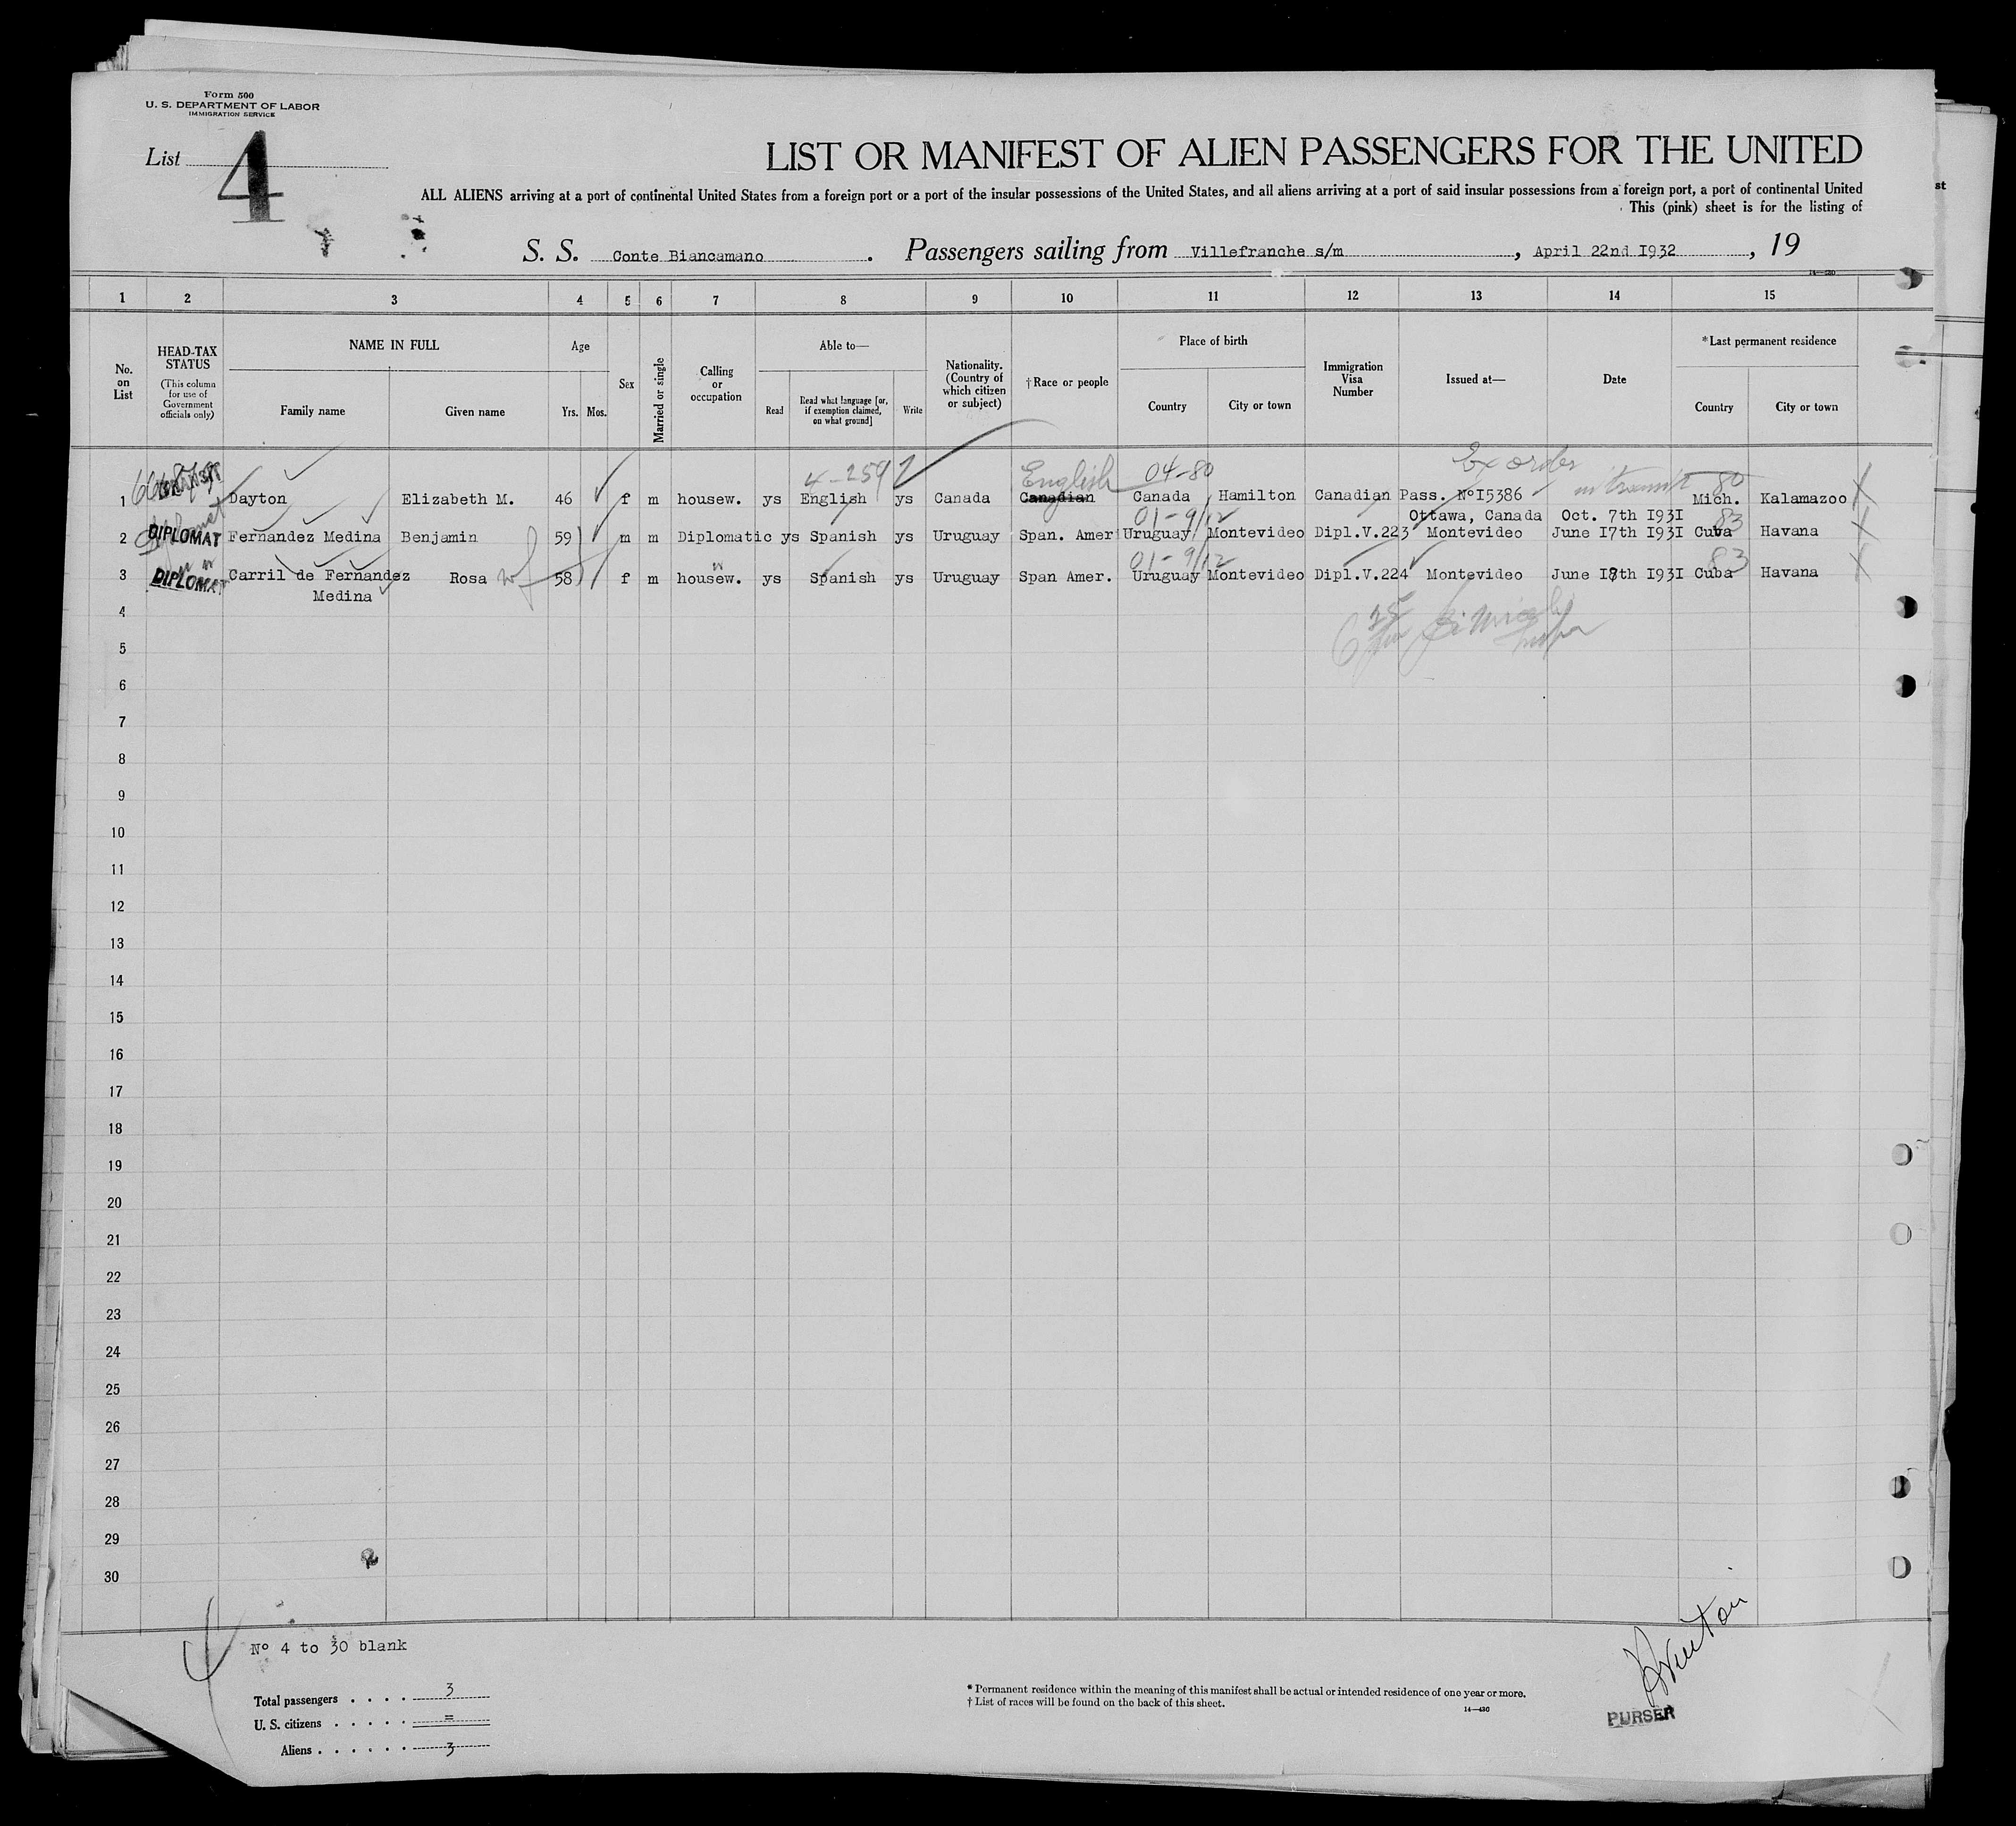 Form 500
U. S. DEPARTMENT OF LABOR
IMMIGRATION SERVICE
List 4
LIST OR MANIFEST OF ALIEN PASSENGERS FOR THE UNITED
ALL ALIENS arriving at a port of continental United States from a foreign port or a port of the insular possessions of the United States, and all aliens arriving at a port of said insular possessions from a foreign port, a port of continental United
This (pink) sheet is for the listing of
st
S. S. Conte Biancamano. Passengers sailing from Villefranche s/m, April 22nd I932, 19
14—430
1 2 3 4 5 6 7 8 9 10 11 12 13 14 15
No. on List
HEAD-TAX STATUS (This column for use of Government officials only)
NAME IN FULL
Family name
Given name
Age
Yrs. Mos.
Sex
Married or single
Calling or occupation
Able to—
Read
Read what language [or, if exemption claimed, on what ground]
Write
Nationality. (Country of which citizen or subject)
†Race or people
Place of birth
Country
City or town
Immigration Visa Number
Issued at—
Date
*Last permanent residence
Country
City or town
4-2592 English 04-80 Ex order in transit 80
1 Dayton Elizabeth M. 46 f m housew. ys English ys Canada Canadian Canada Hamilton Canadian Pass. NoI5386 Mich. Kalamazoo
Ottawa, Canada Oct. 7th I93I
01-9/12 83
2 DIPLOMAT Fernandez Medina Benjamin 59 m m Diplomatic ys Spanish ys Uruguay Span. Amer Uruguay Montevideo Dipl.V.223 Montevideo June I7th I93I Cuba Havana
01-9/12 83
3 DIPLOMAT Carril de Fernandez Rosa wf 58 f m housew. ys Spanish ys Uruguay Span Amer. Uruguay Montevideo Dipl.V.224 Montevideo June I8th I93I Cuba Havana
Medina
4
5
6
7
8
9
10
11
12
13
14
15
16
17
18
19
20
21
22
23
24
25
26
27
28
29
30
No 4 to 30 blank
Total passengers . . . . 3
U. S. citizens . . . . . =
Aliens . . . . . . 3
* Permanent residence within the meaning of this manifest shall be actual or intended residence of one year or more.
† List of races will be found on the back of this sheet.
14—430
PURSER